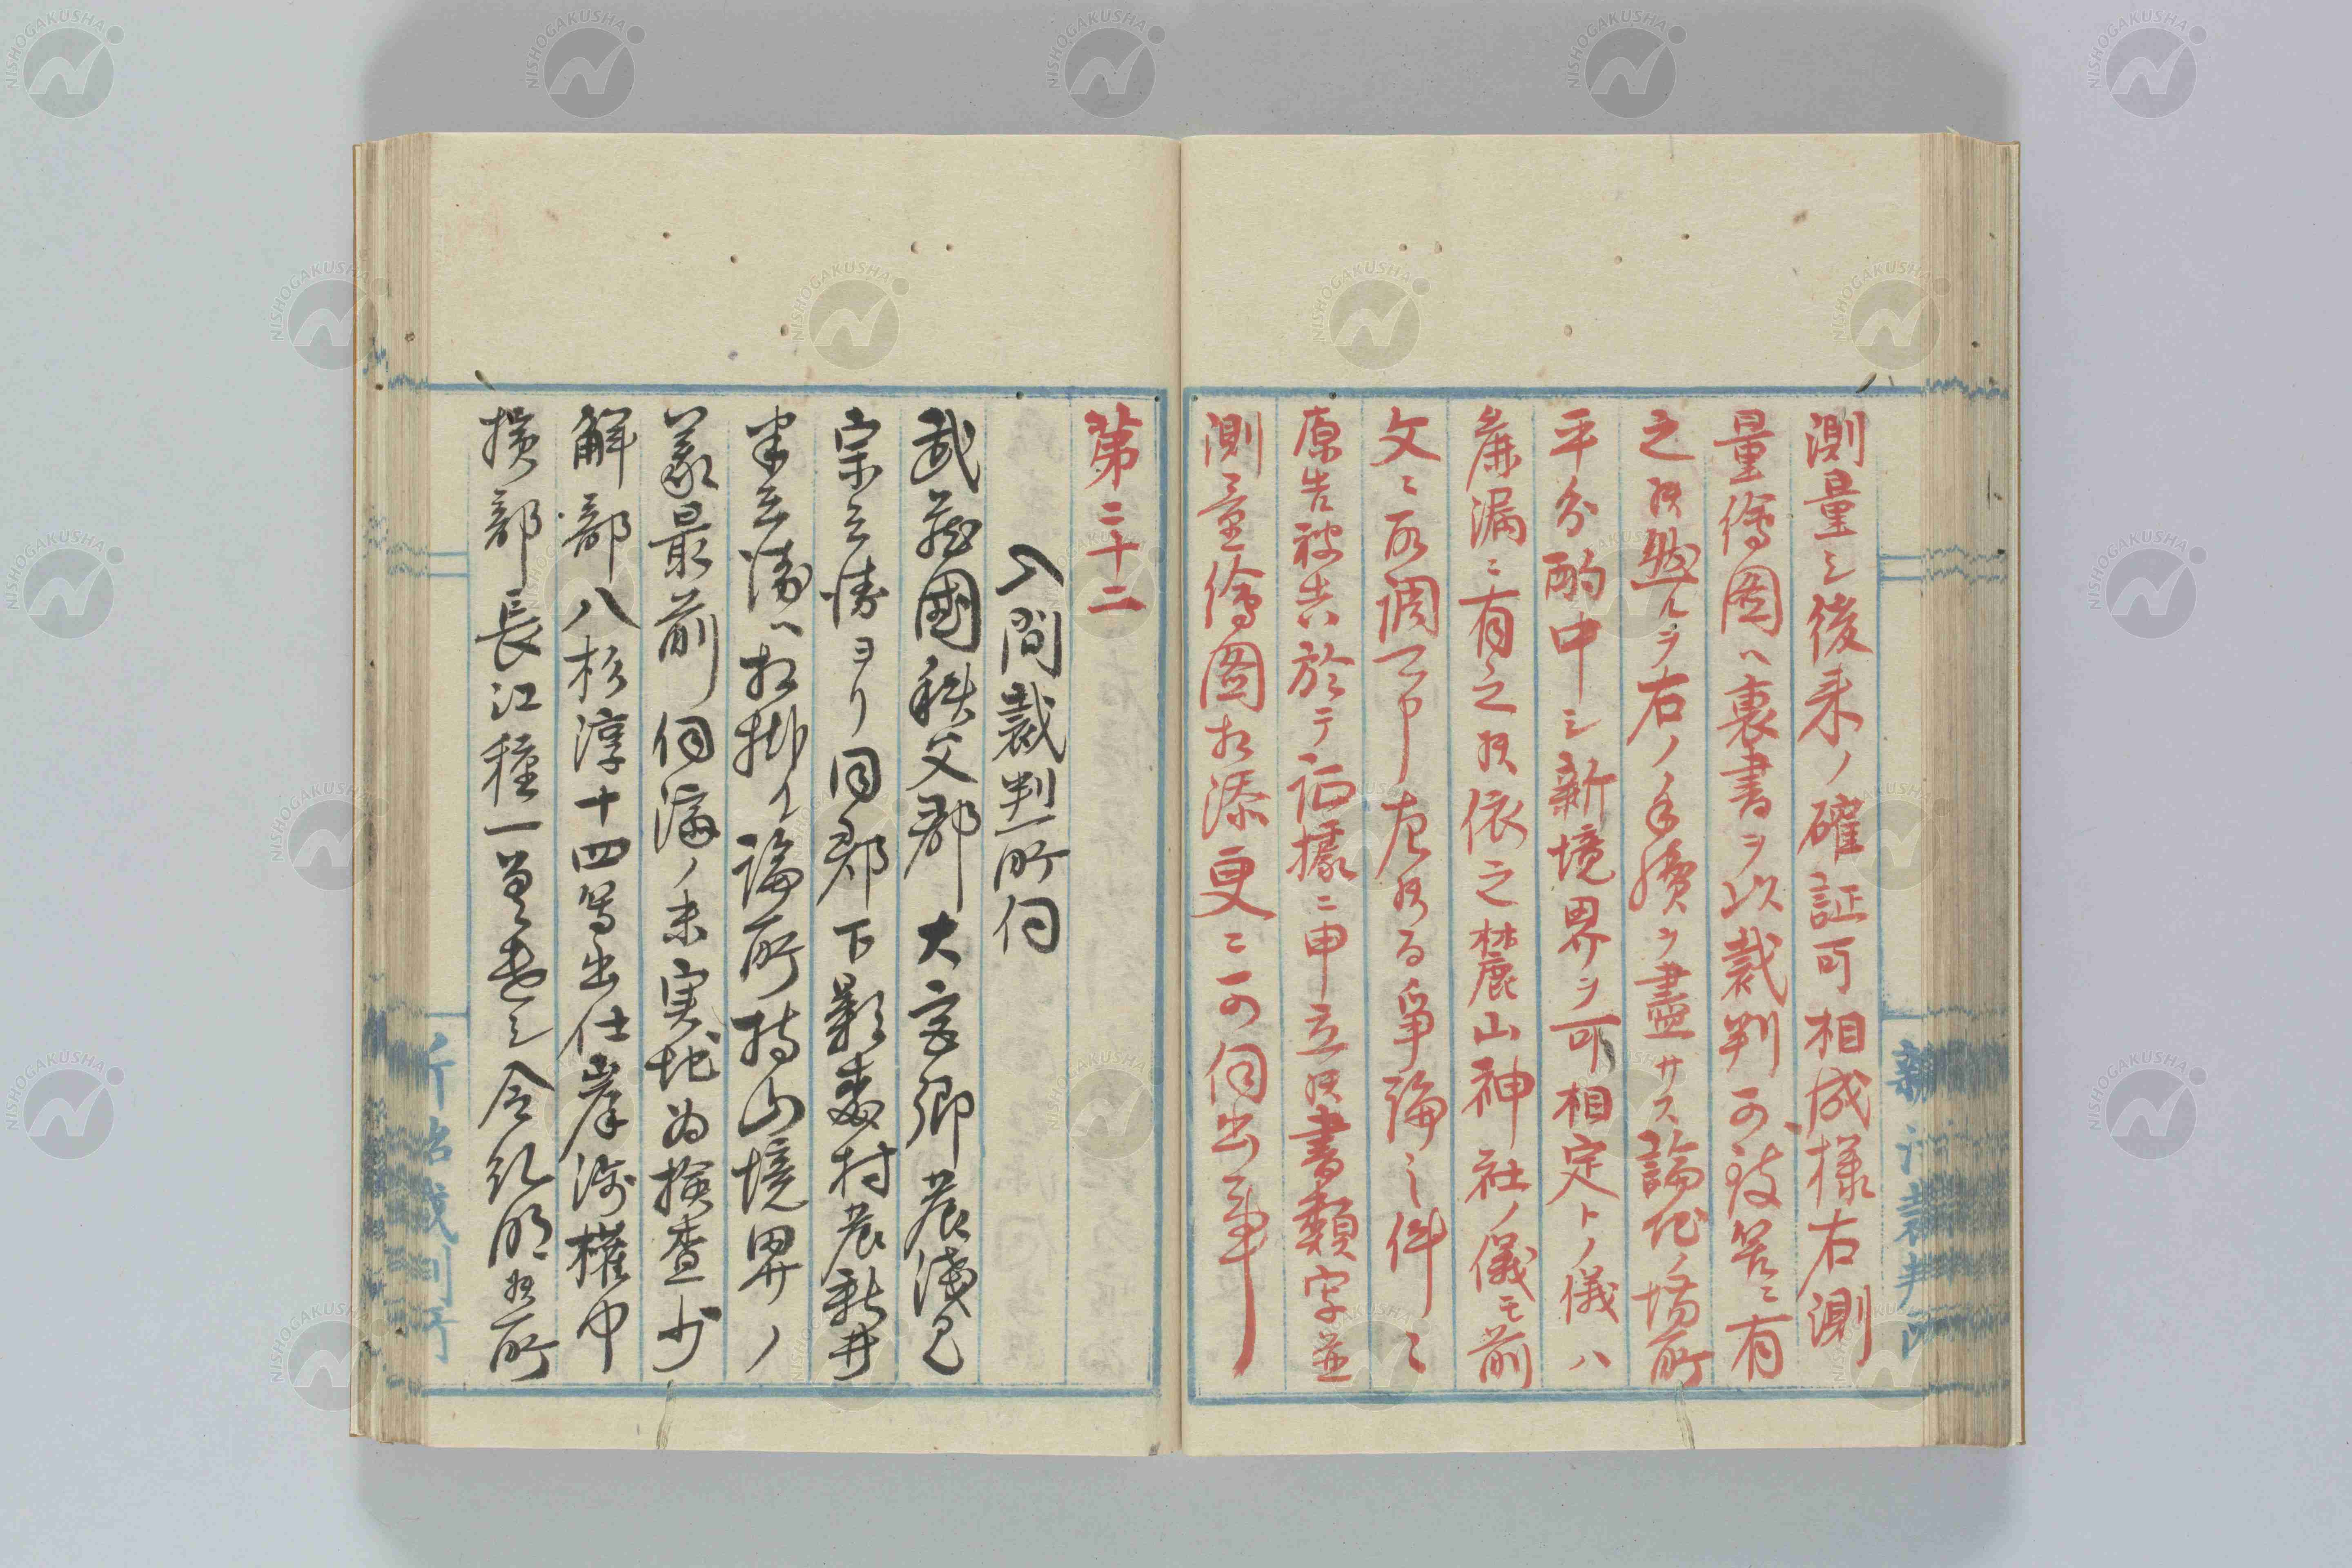 測量シ後来ノ確証可相成様右測
量繪圖ヘ裏書ヲ以裁判可致筈ニ有
之候処ルヲ右ノ手續ヲ盡サス論地ノ場所
平分酌中シ新境界ヲ可相定トノ儀ハ
麁漏ニ有之候依之麓山神社ノ儀モ前
文ニ取調可申左候ハ爭論之件ニ
原告被告於テ証據ニ申立候書類寫並
測量繪圖相添更ニ可伺出事
第二十二
入間裁判所伺
武蔵國秩父郡大宮郷農浅見
宗三儀ヨリ同郡下影森村農新井
三儀ヘ相掛イ論所持山境界ノ
義最前伺済ノ末実地為検査少
解部八杉淳十四等出仕岸權中
検部長江種一差遣シ令糺明候所
NISHOGAKUSHA